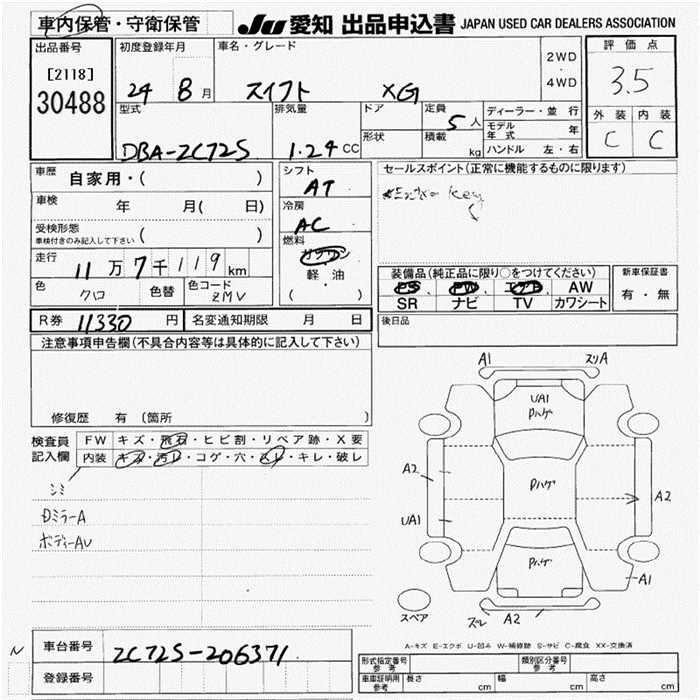 車内保管・守衛保管 JU 愛知 出品申込書 JAPAN USED CAR DEALERS ASSOCIATION
出品番号 初度登録年月 車名・グレード 2WD・4WD 評価点
[2118]
30488
24 8月 スイフト XG 3.5
型式 排気量 ドア 定員 5人 ディーラー・並行 外装 内装
DBA-ZC72S 1.24CC 形状 積載 kg モデル年式 年 C C
ハンドル 左・右
車歴 自家用・( ) シフト AT セールスポイント(正常に機能するものに限ります)
車検 年 月( 日) 冷房 AC Key
受検形態 車検付きのみ記入して下さい ( ) 燃料 ガソリン
走行 11万7千119km 軽・油 ( ・ )
装備品(純正品に限り○をつけてください) 新車保証書
PS PW エアB AW 有・無
SR ナビ TV カワシート
色 クロ 色替 色コード ZMV
後日品
R券 11330 円 名変通知期限 月 日
注意事項申告欄(不具合内容等は具体的に記入して下さい)
修復歴 有 〔箇所 〕
検査員記入欄 FW キズ・飛石・ヒビ割・リペア跡・X要
内装 キズ・汚レ・コゲ・穴・スレ・キレ・破レ
シミ
Dミラー A
ボディー AU
A1 スリA
UA1
Pハゲ
A2 Pハゲ A2
UA1
Pハゲ A1
スペア スレ A2
A-キズ E-エクボ U-凹み W-補修跡 S-サビ C-腐食 XX-交換済
N 車台番号 ZC72S-206371
登録番号
形式指定番号 参考 類別区分番号 参考
車庫証明用 参考 長さ cm 幅 cm 高さ cm